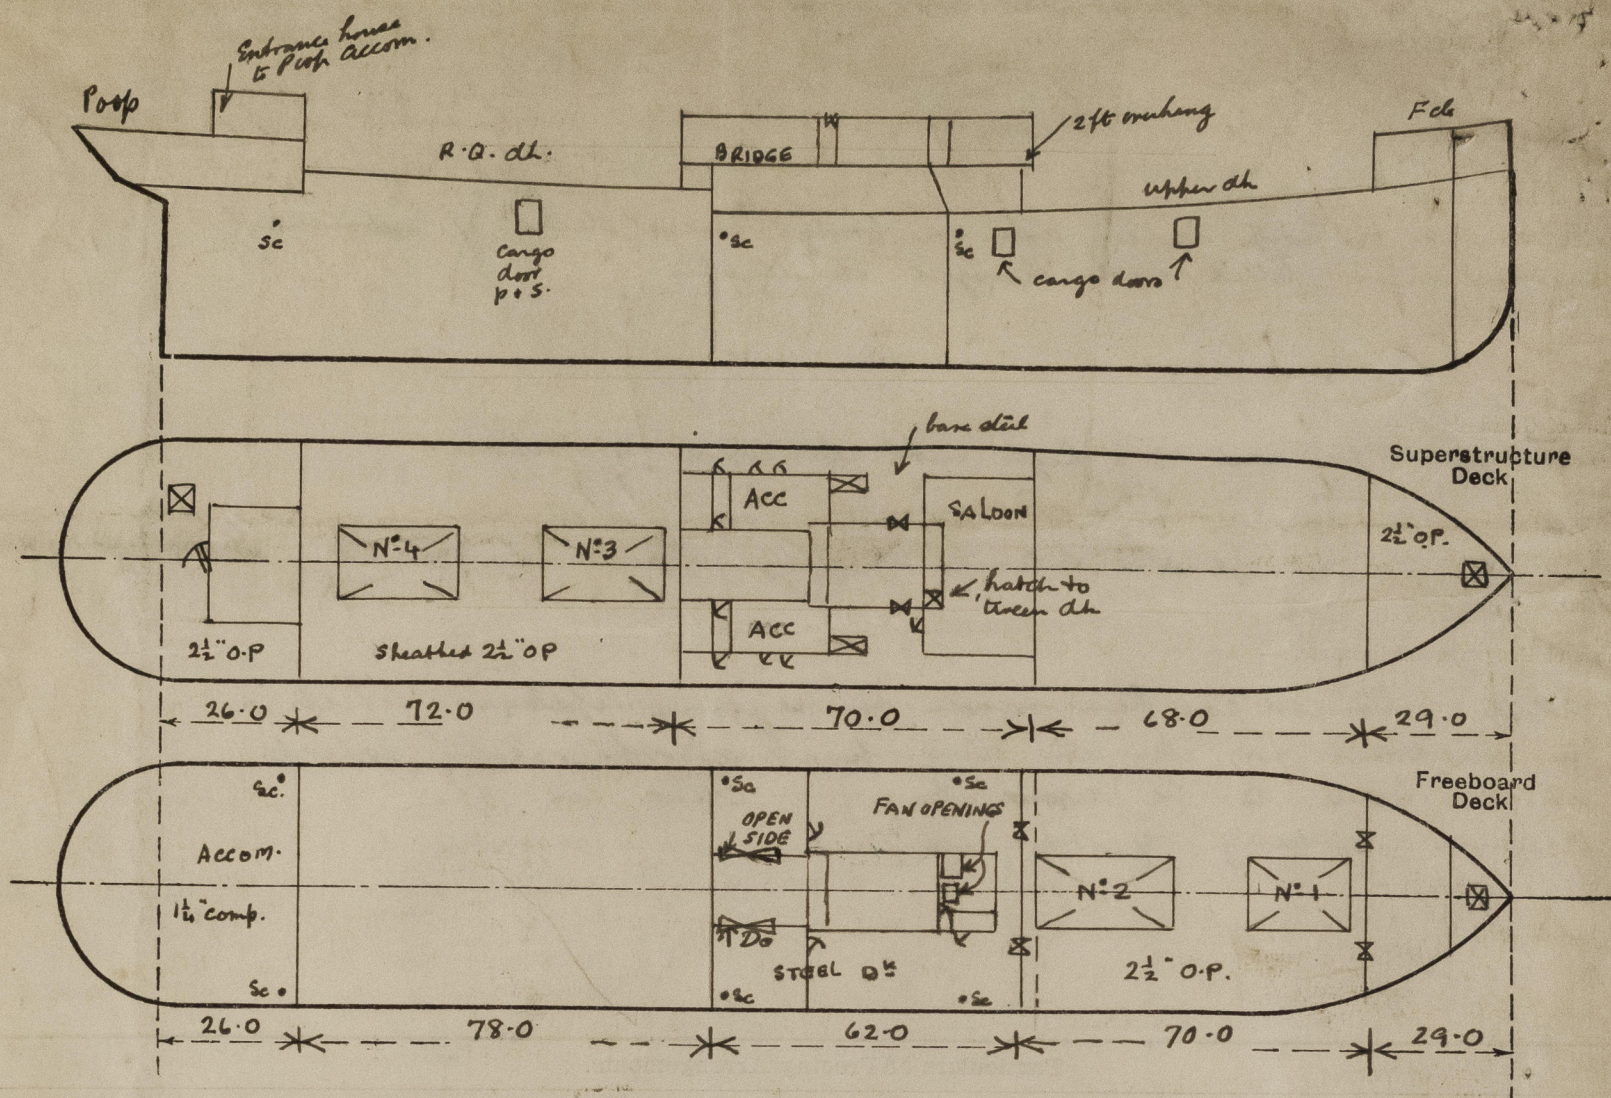 Entrance house
to Poop Accom.
Poop
R.Q. dk.
BRIDGE
2ft overhang
Fcle
upper dk
sc
cargo
door
p + s.
sc
sc
cargo doors
bare steel
Superstructure
Deck
ACC
SALOON
2½" O.P.
Nº 4
Nº 3
hatch to
tween dk
ACC
2½" O.P
Sheathed 2½" O P
26.0
72.0
70.0
68.0
29.0
Freeboard
Deck
Sc.
Sc
Sc
OPEN
SIDE
FAN OPENINGS
Accom.
Nº 2
Nº 1
1¼" comp.
Do
STEEL DK
2½" O.P.
Sc
Sc
Sc
26.0
78.0
62.0
70.0
29.0